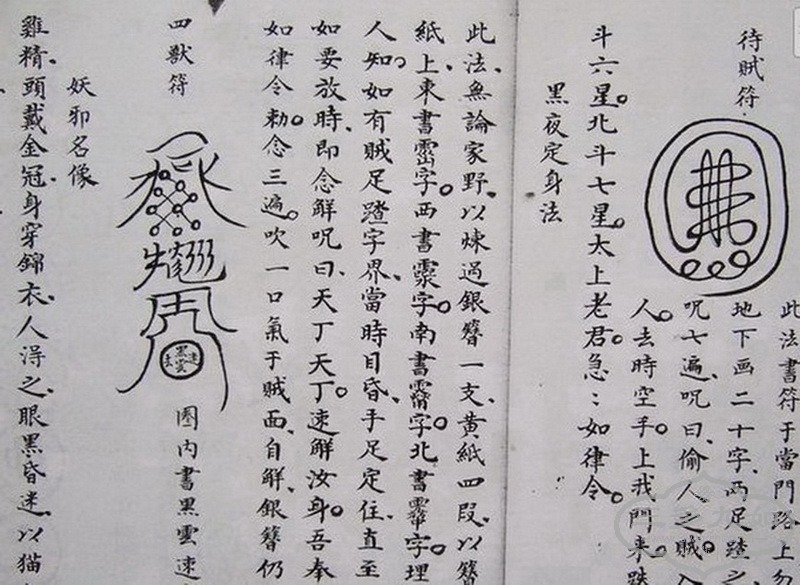 待賊符
此法書符于當門路上
地下画二十字兩足蹅之
呪七遍呪曰偷人之賊
人去時空手上我門來跌
斗六星北斗七星太上老君急〻如律令
黑夜定身法
此法無論家野以煉過銀簪一支黄紙四段以簪
紙上東書字西書字南書字北書字埋
人知如有賊足蹅字界當時目昏手足定住直至
如要放時即念解呪曰天丁天丁速解汝身吾奉
如律令勅念三遍吹一口氣于賊面自解銀簪仍
四獸符
黑雲速
圈内書黑雲速
妖邪名像
雞精頭戴金冠身穿錦衣人淂之眼黑昏迷以猫